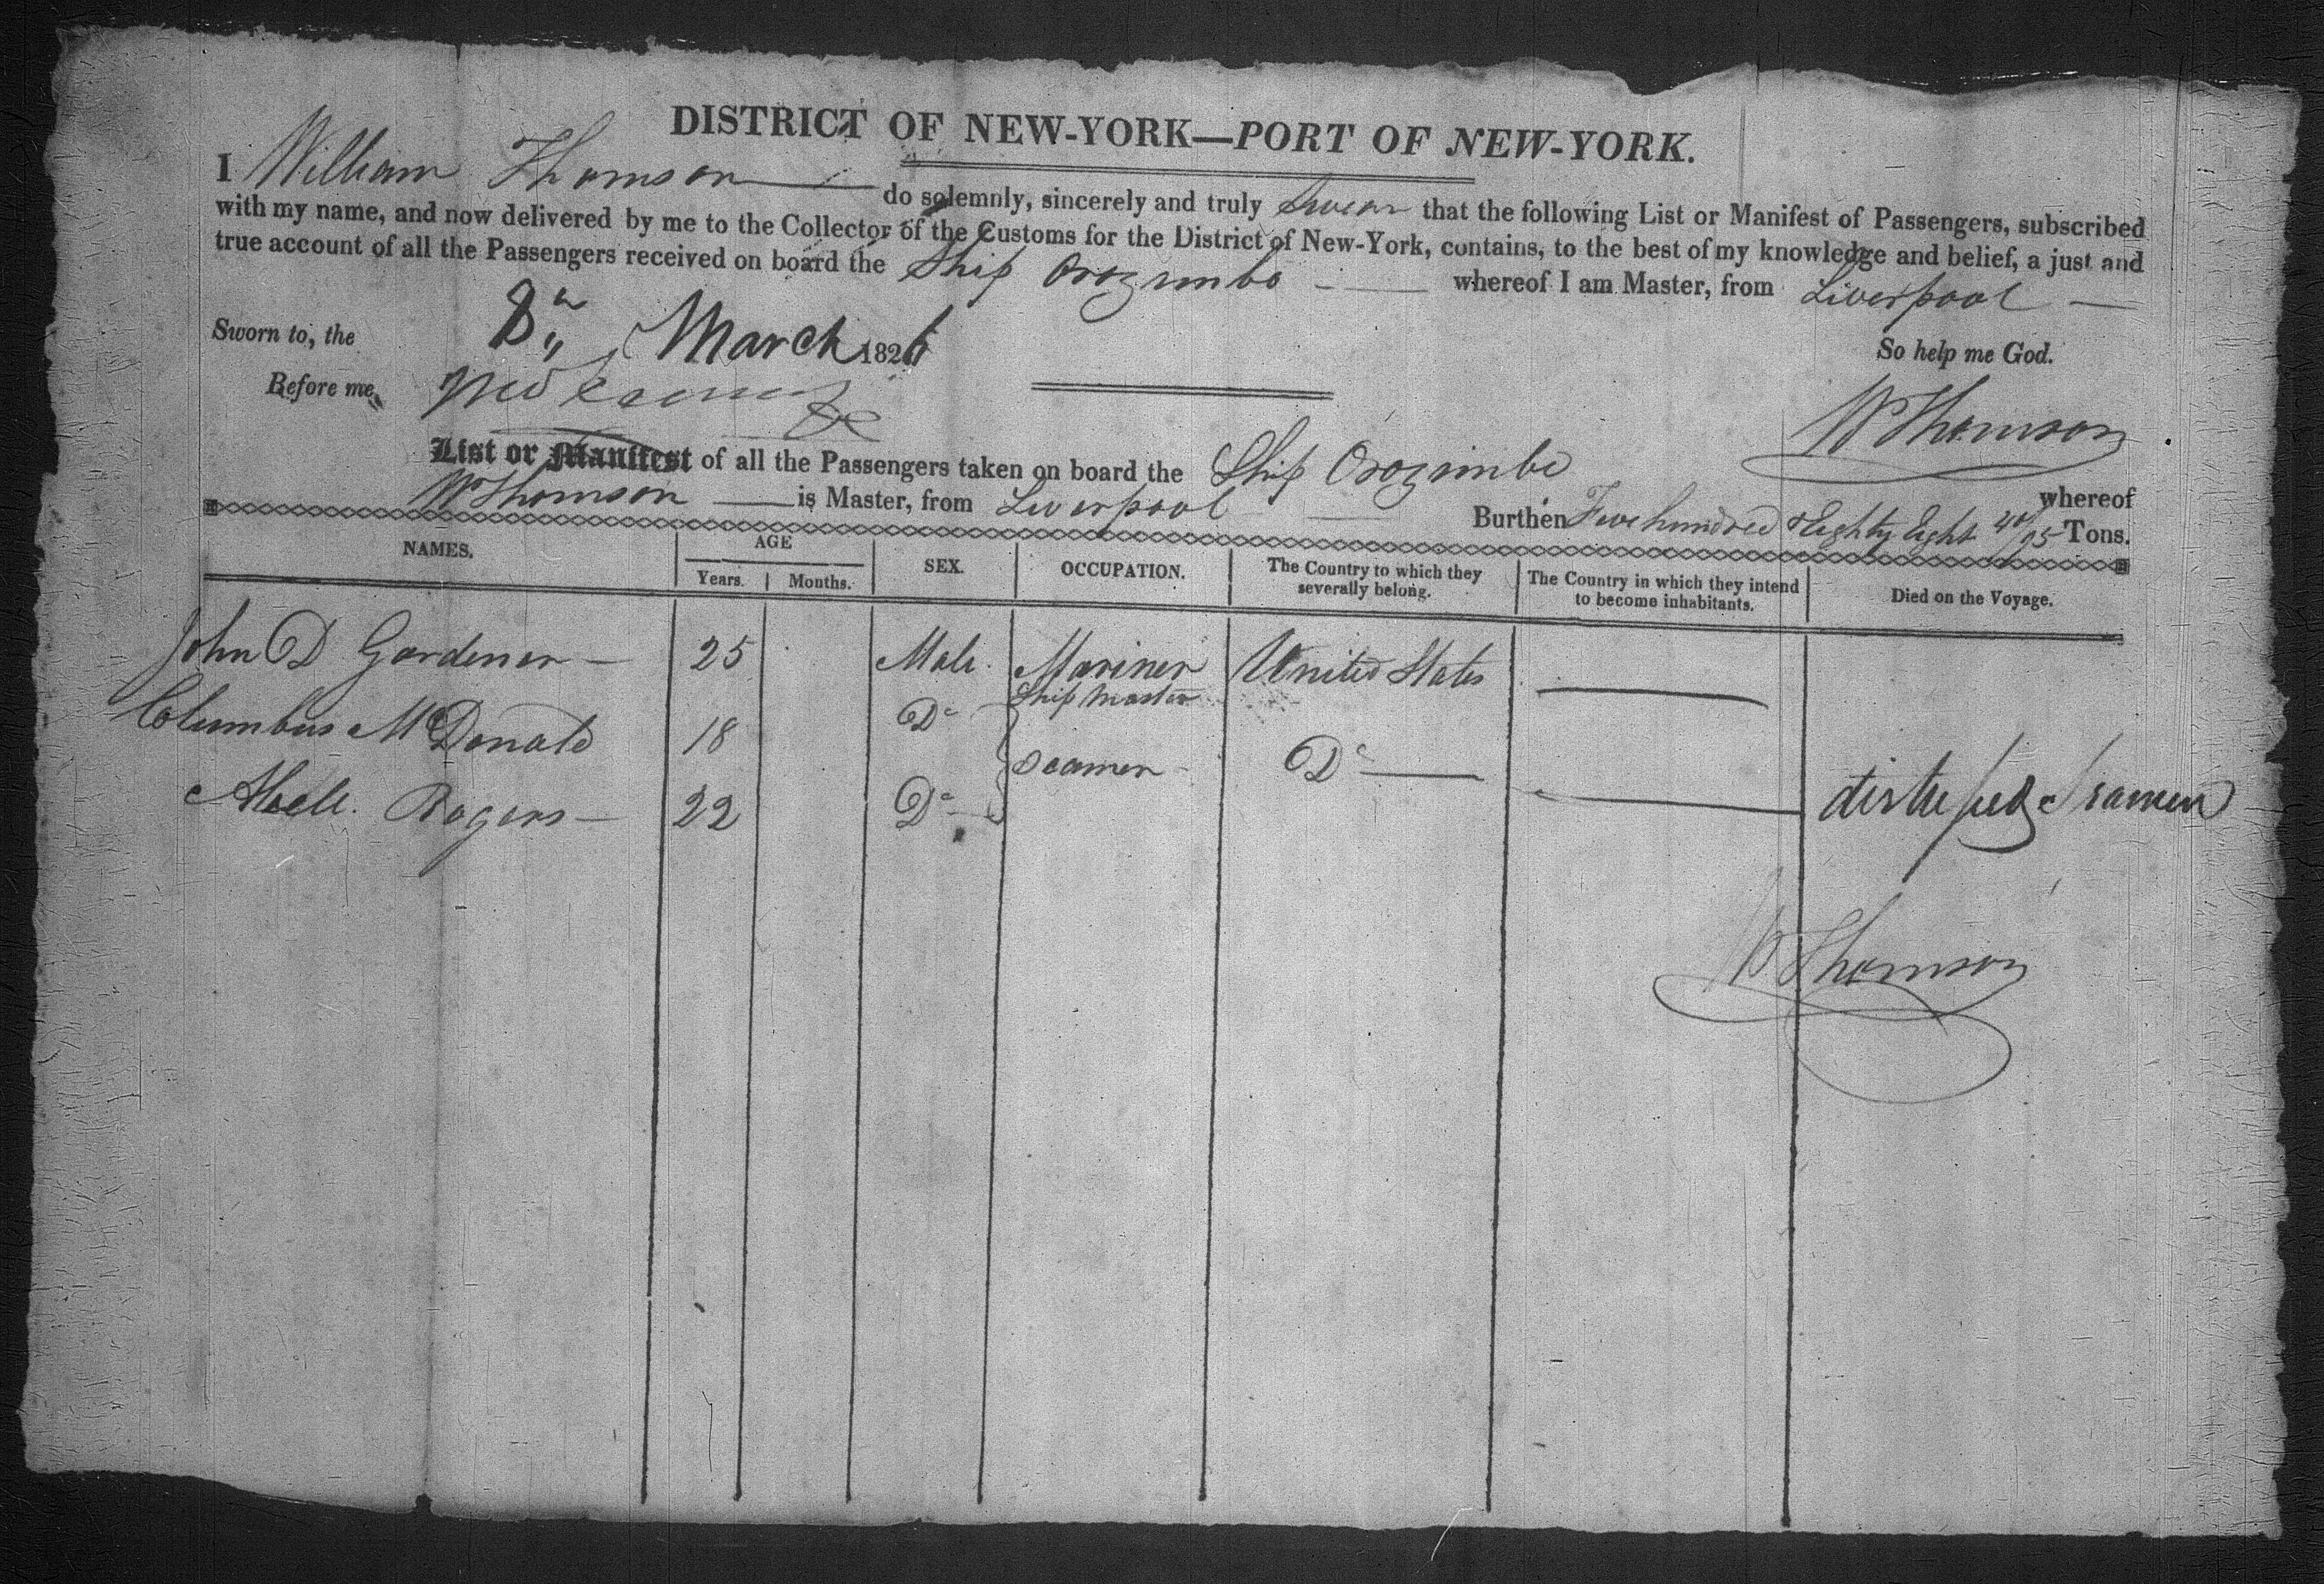 DISTRICT OF NEW-YORK—PORT OF NEW-YORK.
I William Thomson do solemnly, sincerely and truly Swear that the following List or Manifest of Passengers, subscribed
with my name, and now delivered by me to the Collector of the Customs for the District of New-York, contains, to the best of my knowledge and belief, a just and
true account of all the Passengers received on board the Ship Orozimbo whereof I am Master, from Liverpool
Sworn to, the 8th March 1826
So help me God.
Before me,
Wm Thomson
List or Manifest of all the Passengers taken on board the Ship Orozimbo whereof
Wm Thomson is Master, from Liverpool Burthen Five hundred & Eighty Eight 40/95 Tons.
NAMES. AGE Years. Months. SEX. OCCUPATION. The Country to which they severally belong. The Country in which they intend to become inhabitants. Died on the Voyage.
John D Gardener 25 Male Mariner United States
Ship Master
Columbus McDonald 18 Do Seamen Do
Rogers 22 Do
Seamen
Wm Thomson